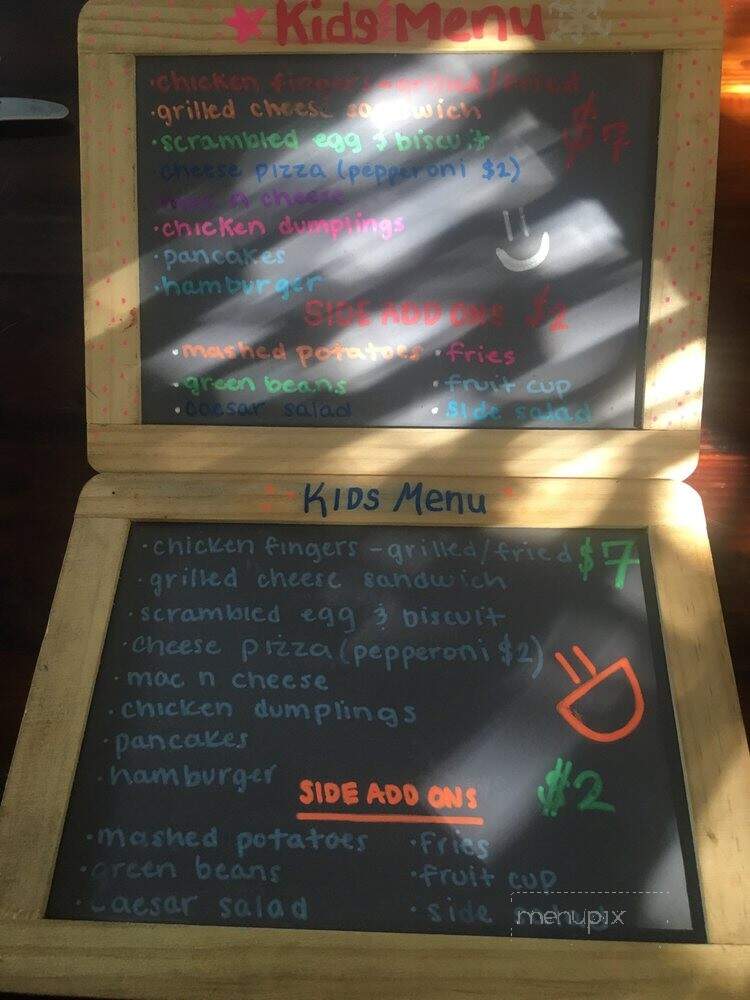 Kids Menu
•chicken fingers-grilled/fried
•grilled cheese sandwich
$7
•scrambled egg & biscuit
•cheese pizza (pepperoni $2)
•mac n cheese
•chicken dumplings
•pancakes
•hamburger
SIDE ADD ONS $2
•mashed potatoes •fries
•green beans •fruit cup
•caesar salad •side salad
KIDS Menu
•chicken fingers -grilled/fried $7
•grilled cheese sandwich
•scrambled egg & biscuit
•cheese pizza (pepperoni $2)
•mac n cheese
•chicken dumplings
•pancakes
•hamburger
SIDE ADD ONS $2
•mashed potatoes •fries
•green beans •fruit cup
•caesar salad •side salad
menupix